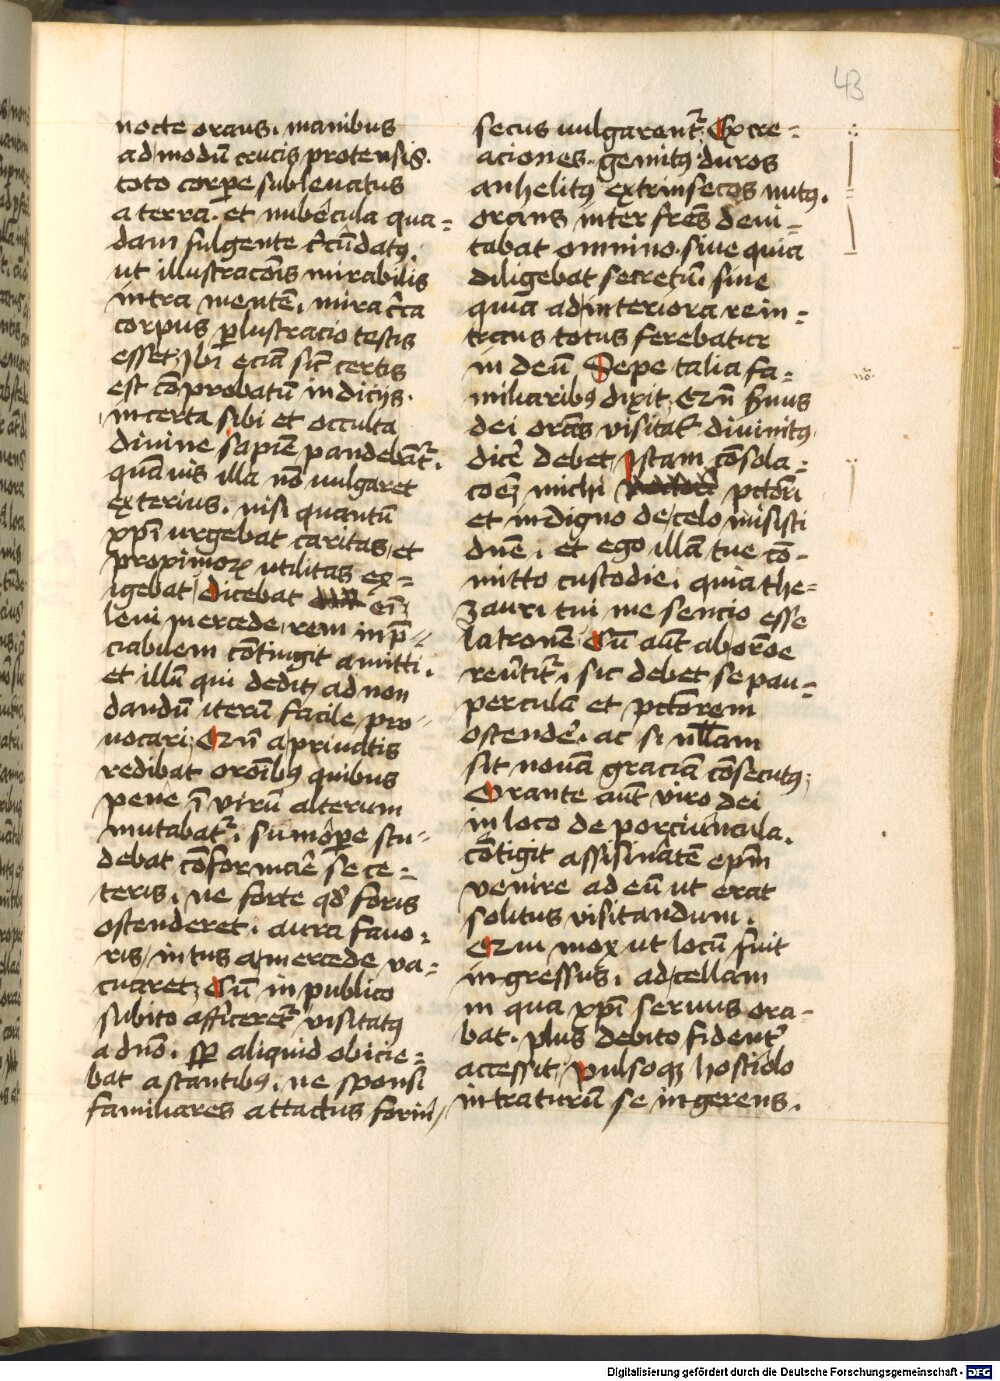 43
nocte orans. manibus
ad modū crucis protensis.
toto corpe subleuatus
a terra. et nubecula qua=
dam fulgente c̄cūdatꝰ.
ut illustracōis mirabilis
intra mentē, mira c̄ca
corpus plustracio testis
esset; Ibi eciā sic̄ certis
est cōprobatū indicijs.
incerta sibi et occulta
diuine sapiē pandebāt᷑.
quāuis illa nō uulgaret
exterius. nisi quantū
xp̄i urgebat caritas, et
proximoꝝ utilitas ex=
igebat, dicebat eī
leui mercede, rem inp̄=
ciabilem cōtingit amitti.
et illū qui dedit, ad non
dandū iterū facile pro=
uocari; Cū a priuatis
redibat orōibꝰ quibus
pene ī virū alterum
mutabat᷑. sumope stu=
debat cōformaē se ce=
teris, ne forte qd̓ foris
ostenderet, aura fauo=
ris, intus a mercede va=
cuaret; Cū in publico
subito afficeret᷑ visitatꝰ
a dn̄o. sp̄ aliquid obicie=
bat astantibꝰ, ne sponsi
familiares attactus forin̄
secus uulgarent᷑; Excre=
aciones. gemitꝰ duros
anhelitꝰ extrinsecos nutꝰ.
orans inter fr̄es deui=
tabat omnino. siue quia
diligebat secretū, siue
quia ad interiora rein=
trans totus ferebatur
in deū Sepe talia fa=
miliaribꝰ dixit; Cū s̄uus
dei orās visitat᷑ diuinitꝰ
dic̄e debet, Istam cōsola=
cōeꝫ michi pctōri
et indigno de celo misisti
dn̄e. et ego illā tue cō=
mitto custodie. quia the=
zauri tui me sencio esse
latronē Cū aūt ab orōe
reūtit᷑, sic debet se pau=
perculū et pctōrem
ostendē. ac si nullam
sit nouā graciā cōsecutꝰ;
Orante aūt viro dei
in loco de porciuncula.
cōtigit assisinatē ep̄m
venire ad eū ut erat
solitus visitandum.
Qui mox ut locū fuit
ingressus, ad cellam
in qua xp̄i seruus ora=
bat. plus debito fident᷑
accessit, pulsoqꝫ hostiolo
intraturū se ingerens.
Digitalisierung gefördert durch die Deutsche Forschungsgemeinschaft - DFG